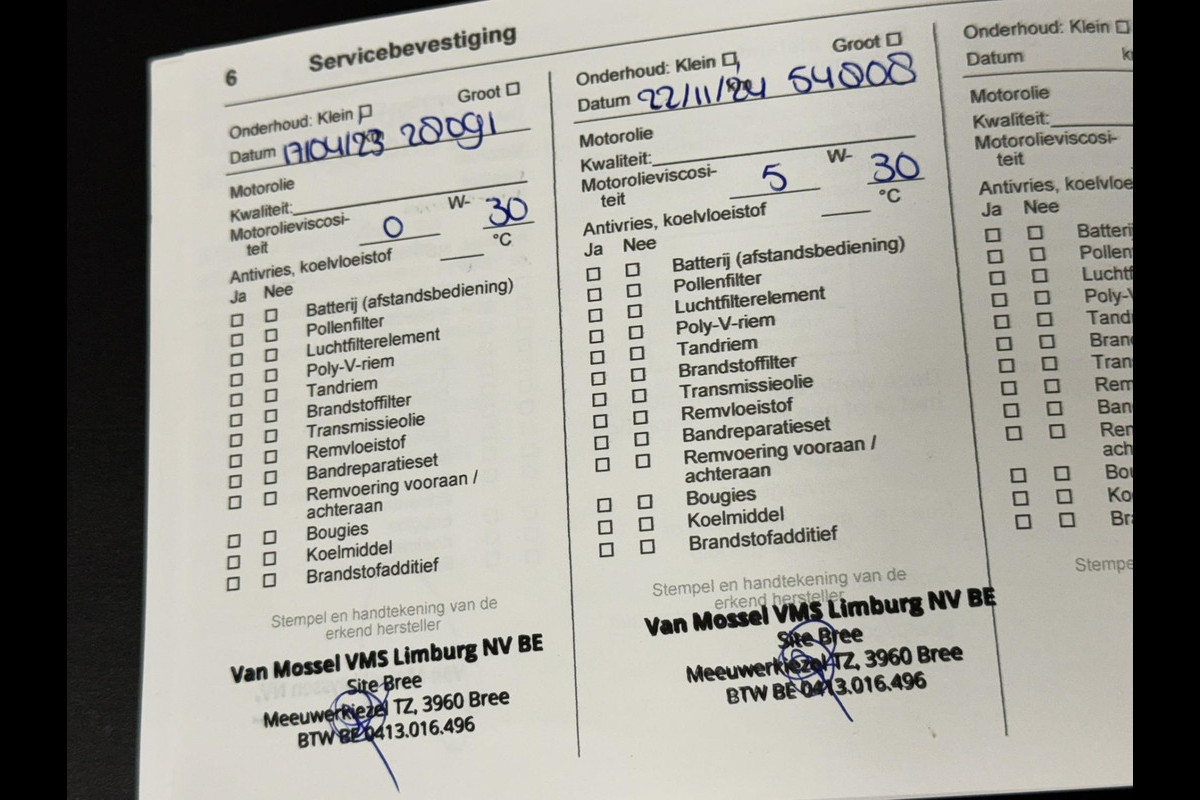 6 Servicebevestiging
Onderhoud: Klein Groot
Datum 17/04/23 km 28091
Motorolie
Kwaliteit:
Motorolieviscosi-
teit 0 W- 30
Antivries, koelvloeistof °C
Ja Nee
Batterij (afstandsbediening)
Pollenfilter
Luchtfilterelement
Poly-V-riem
Tandriem
Brandstoffilter
Transmissieolie
Remvloeistof
Bandreparatieset
Remvoering vooraan /
achteraan
Bougies
Koelmiddel
Brandstofadditief
Stempel en handtekening van de
erkend hersteller
Van Mossel VMS Limburg NV BE
Site Bree
Meeuwerkiezel TZ, 3960 Bree
BTW BE 0413.016.496
Onderhoud: Klein Groot
Datum 22/11/24 km 54808
Motorolie
Kwaliteit:
Motorolieviscosi-
teit 5 W- 30
Antivries, koelvloeistof °C
Ja Nee
Batterij (afstandsbediening)
Pollenfilter
Luchtfilterelement
Poly-V-riem
Tandriem
Brandstoffilter
Transmissieolie
Remvloeistof
Bandreparatieset
Remvoering vooraan /
achteraan
Bougies
Koelmiddel
Brandstofadditief
Stempel en handtekening van de
erkend hersteller
Van Mossel VMS Limburg NV BE
Site Bree
Meeuwerkiezel TZ, 3960 Bree
BTW BE 0413.016.496
Onderhoud: Klein
Datum k
Motorolie
Kwaliteit:
Motorolieviscosi-
teit
Antivries, koelvloe
Ja Nee
Batteri
Pollen
Luchtf
Poly-V
Tand
Bran
Tran
Rem
Ban
Ren
ach
Bou
Ko
Bra
Stempe